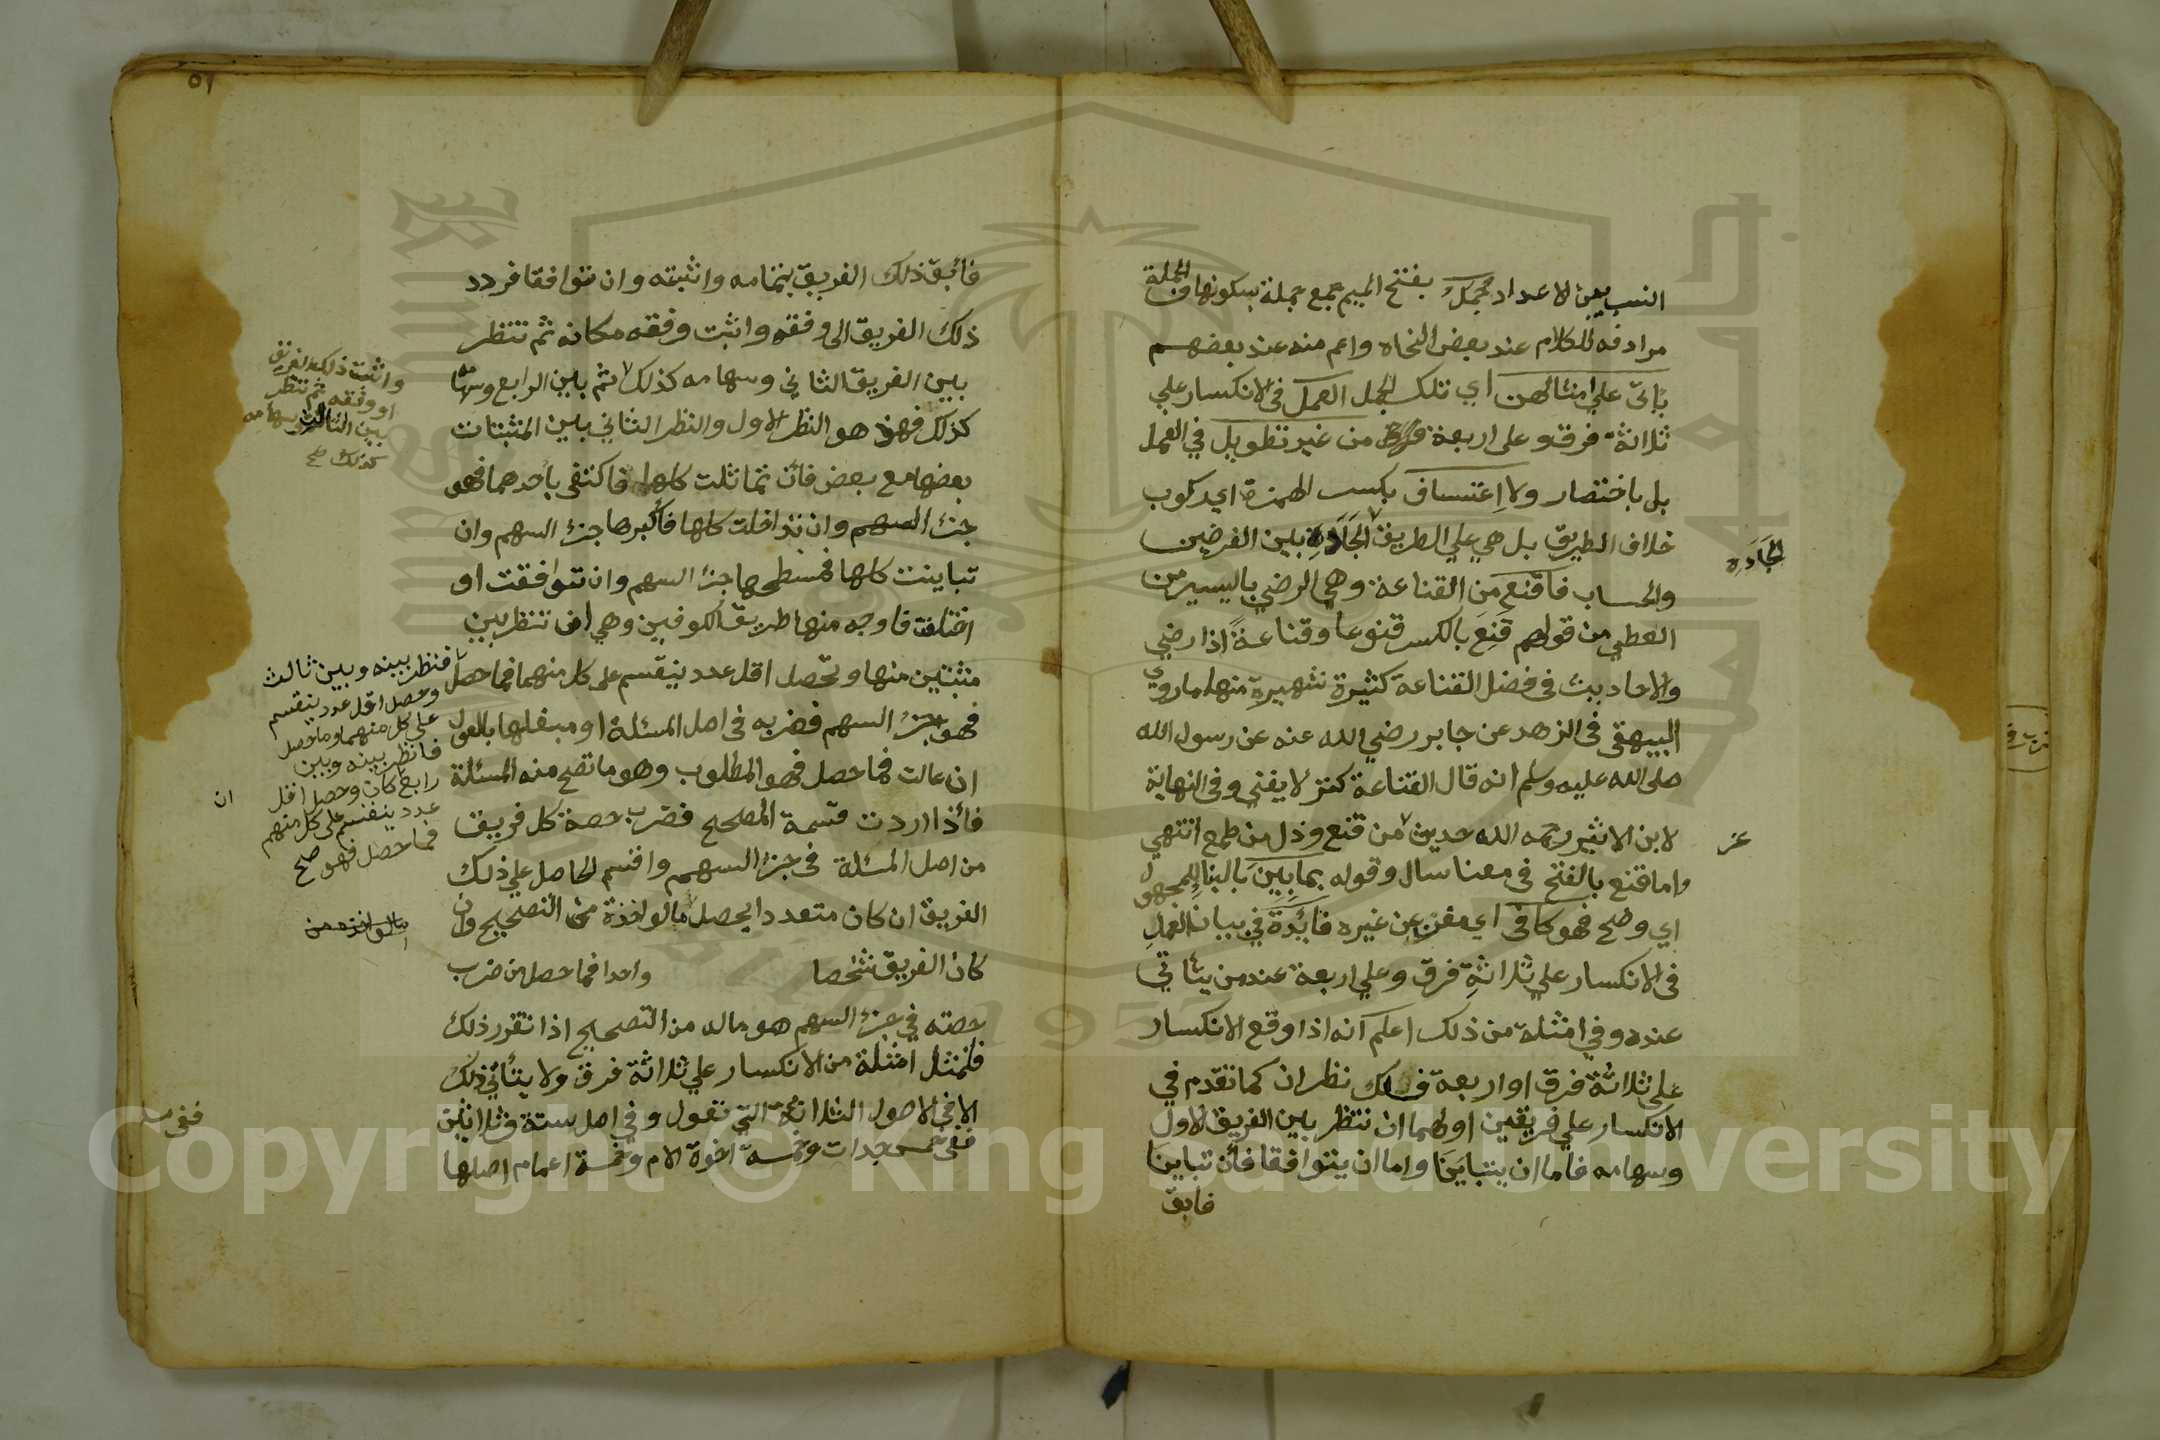 النسب بين الاعداد جمل بفتح الميم جمع جملة بسكونها والجملة
مرادفه للكلام عند بعض النحاه واعم منه عند بعضهم
يأتى علي امثالهن اي تلك الجمل العمل فى الانكسار علي
ثلاثة فرق وعلى اربعة فرق من غير تطويل في العمل
بل باختصار ولا إعتساف بكسر الهمزة اي ركوب
خلاف الطريق بل هي علي الطريق الجَادَهِ بين الفرضين
والحساب فاقنع من القناعة وهي الرضي باليسير من
العطي من قولهم قَنِعَ بالكسر قنوعا وقناعةً اذا رضي
والاحاديث فى فضل القناعة كثيرة شهيرة منها ماروي
البيهقى فى الزهد عن جابر رضي الله عنه عن رسول الله
صلى الله عليه وسلم انه قال القناعة كنز لا يفني وفى النهاية
لابن الاثير رحمه الله حديث من قنع وذل من طمع انتهي
واما قنع بالفتح في معنا سال وقوله بما بين بالبنا للمجهول
اي وضح فهو كافى اي مغن عن غيره فايدة في بيان العمل
فى الانكسار علي ثلاثةِ فرق وعلي اربعة عند من يتأتي
عنده وفي امثلة من ذلك اعلم انه اذا وقع الانكسار
على ثلاثة فرق او اربعة فلك نظران كما تقدم في
الانكسار علي فريقين اولهما ان تنظر بين الفريق الاول
وسهامه فاما ان يتباينا واما ان يتوافقا فان تباينا
فابق
الجَادَه
عز
٥٩
فأبق ذلك الفريق بتمامه واثبته وان توافقا فردد
ذلك الفريق الى وفقه واثبت وفقه مكانه ثم تنظر
بين الفريق الثاني وسهامه كذلك ثم بين الرابع وسهامه
كذلك فهذا هو النظر الاول والنظر الثاني بين المثبتات
بعضها مع بعض فان تماثلت كلها فاكتفى باحدهما فهو
جزء السهم وان تداخلت كلها فأكبرها جزء السهم وان
تباينت كلها فمسطحها جزء السهم وان توافقت او
اختلفت فاوجه منها طريق الكوفيين وهي ان تنظر بين
مثبتين منها وتحصل اقل عدد ينقسم على كل منهما فما حصل
فهو جزء السهم فضربه فى اصل المسئلة او مبلغها بالعول
ان عالت فما حصل فهو المطلوب وهو ما تصح منه المسئلة
فأذا اردت قسمة المصحح فضرب حصة كل فريق
من اصل المسئلة فى جزء السهم واقسم الحاصل علي ذلك
الفريق ان كان متعددا يحصل مالواحده من التصحيح وان
كان الفريق شخصا واحدا فما حصل من ضرب
حصته في جزء السهم هو ماله من التصحيح اذا تقرر ذلك
فلنمثل امثلة من الانكسار علي ثلاثة فرق ولا يتأتي ذلك
الا في الاصول الثلاثة التي تعول وفي اصل ستة وثلاثين
ففى خمس جدات وخمسة اخوة لام وخمسة اعمام اصلها
واثبت ذلك الفريق
او وفقه ثم تنظر
بين الثالث وسهامه
كذلك صح
فتظر بينه وبين ثالث
وحصل اقل عدد ينقسم
على كل منهما وما حصل
فانظر بينه وبين
رابع كان وحصل اقل
عدد ينقسم على كل منهم
فما حصل فهو صح
ان
ففى
Copyright © King Saud University
1957